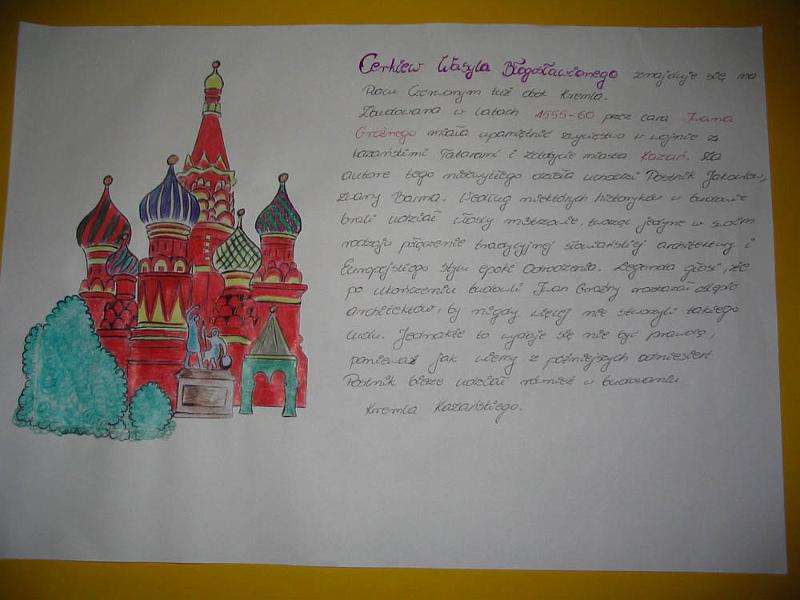 Cerkiew Wasyla Błogosławionego znajduje się na
Placu Czerwonym tuż obok Kremla.
Zbudowana w latach 1555-60 przez cara Iwana
Groźnego miała upamiętnić zwycięstwo w wojnie z
kazańskimi Tatarami i zdobycie miasta Kazań. Za
autora tego niezwykłego dzieła uchodzi Postnik Jakowlew,
zwany Barma. Według niektórych historyków w budowie
brali udział włoscy mistrzowie, tworząc jedyne w swoim
rodzaju połączenie tradycyjnej słowiańskiej architektury i
Europejskiego stylu epoki Odrodzenia. Legenda głosi, że
po ukończeniu budowli Iwan Groźny rozkazał oślepić
architektów, by nigdy więcej nie stworzyli takiego
cudu. Jednakże to wydaje się nie być prawdą,
ponieważ jak wiemy z późniejszych odniesień
Postnik bierze udział również w budowaniu
Kremla Kazańskiego.